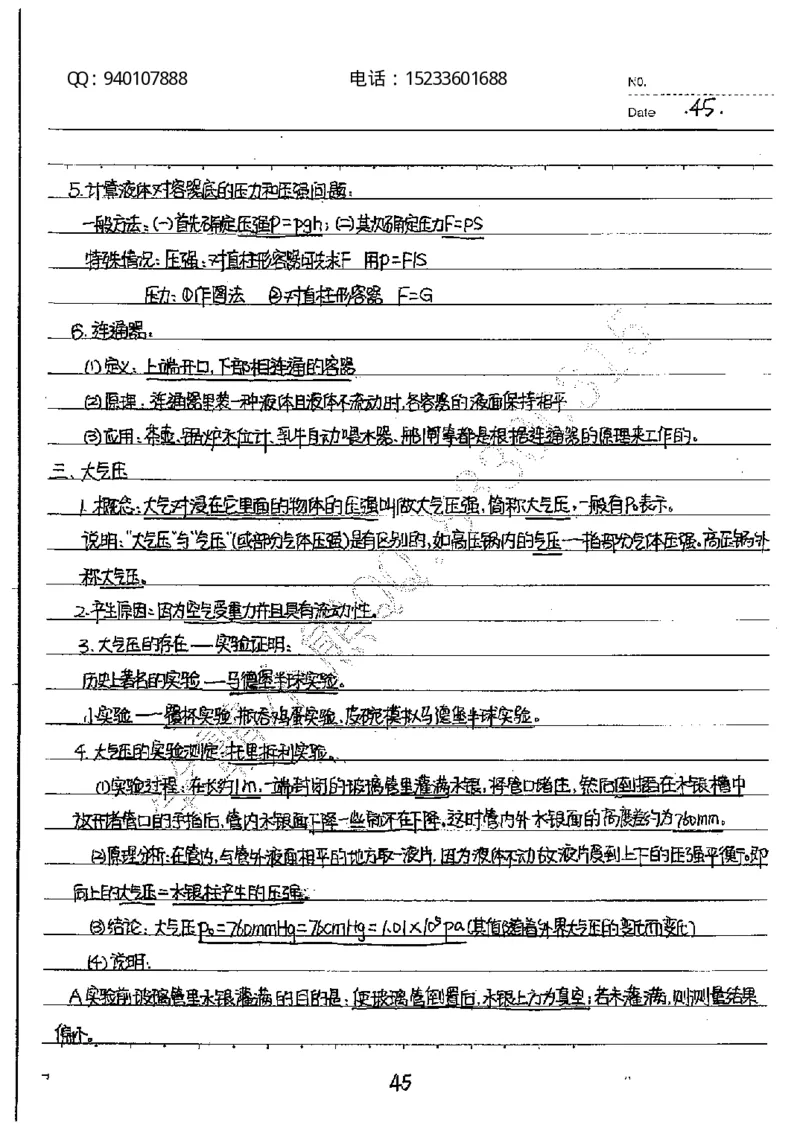 QQ：940107888 电话：15233601688 NO.
Date .45.
5.计算液体对容器底的压力和压强问题：
一般方法：(一)首先确定压强P=ρgh；(二)其次确定压力F=PS
特殊情况：压强：对直柱形容器可先求F 用p=F/S
压力：①作图法 ②对直柱形容器 F=G
6.连通器：
(1)定义：上端开口，下部相连通的容器
(2)原理：连通器里装一种液体且液体不流动时，各容器的液面保持相平
(3)应用：茶壶、锅炉水位计、乳牛自动喂水器、船闸等都是根据连通器的原理来工作的。
三、大气压
1.概念：大气对浸在它里面的物体的压强叫做大气压强，简称大气压，一般有P₀表示。
说明："大气压"与"气压"(或部分气体压强)是有区别的，如高压锅内的气压——指部分气体压强。高压锅外
称大气压。
2.产生原因：因为空气受重力并且具有流动性。
3.大气压的存在——实验证明：
历史上著名的实验——马德堡半球实验。
小实验——覆杯实验、瓶吞鸡蛋实验、皮碗模拟马德堡半球实验。
4.大气压的实验测定：托里拆利实验。
(1)实验过程：在长约1m，一端封闭的玻璃管里灌满水银，将管口堵住，然后倒插在水银槽中
放开堵管口的手指后，管内水银面下降一些就不在下降，这时管内外水银面的高度差约为760mm。
(2)原理分析：在管内，与管外液面相平的地方取一液片，因为液体不动故液片受到上下的压强平衡。即
向上的大气压=水银柱产生的压强。
(3)结论：大气压P₀=760mmHg=76cmHg=1.01×10⁵pa(其值随着外界大气压的变化而变化)
(4)说明：
A实验前玻璃管里水银灌满的目的是：使玻璃管倒置后，水银上方为真空；若未灌满，则测量结果
偏小。
45